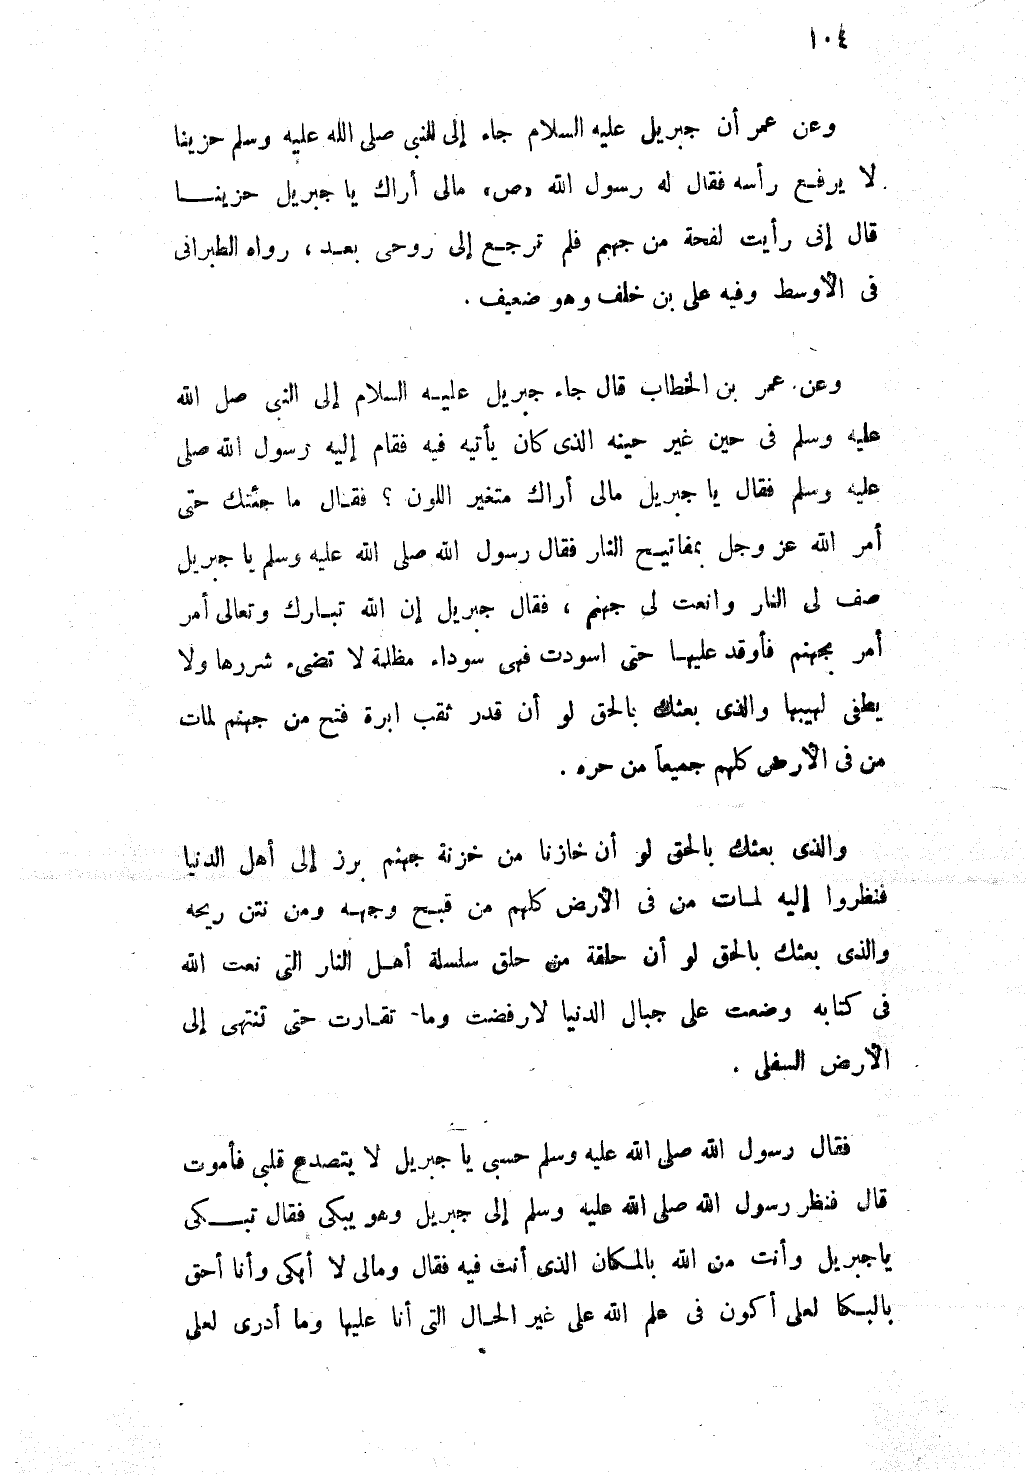 ١٠٤
وعن عمر أن جبريل عليه السلام جاء إلى للنبى صلى الله عليه وسلم حزينا
لا يرفع رأسه فقال له رسول الله «ص» مالى أراك يا جبريل حزينا
قال إنى رأيت لفحة من جهنم فلم ترجع إلى روحى بعد ، رواه الطبرانى
فى الأوسط وفيه على بن خلف وهو ضعيف .
وعن عمر بن الخطاب قال جاء جبريل عليه السلام إلى النبى صل الله
عليه وسلم فى حين غير حينه الذى كان يأتيه فيه فقام إليه رسول الله صلى
عليه وسلم فقال يا جبريل مالى أراك متغير اللون ؟ فقال ما جئتك حتى
أمر الله عز وجل بمفاتيح النار فقال رسول الله صلى الله عليه وسلم يا جبريل
صف لى النار وانعت لى جهنم ، فقال جبريل إن الله تبارك وتعالى أمر
أمر بجهنم فأوقد عليها حتى اسودت فهى سوداء مظلمة لا تضىء شررها ولا
يطفى لهيبها والذى بعثك بالحق لو أن قدر ثقب ابرة فتح من جهنم لمات
من فى الأرض كلهم جميعاً من حره .
والذى بعثك بالحق لو أن خازنا من خزنة جهنم برز إلى أهل الدنيا
فنظروا إليه لمات من فى الأرض كلهم من قبح وجهه ومن نتن ريحه
والذى بعثك بالحق لو أن حلقة من حلق سلسلة أهل النار التى نعت الله
فى كتابه وضعت على جبال الدنيا لارفضت وما تقارت حتى تنتهى إلى
الأرض السفلى .
فقال رسول الله صلى الله عليه وسلم حسبى يا جبريل لا يتصدع قلبى فأموت
قال فنظر رسول الله صلى الله عليه وسلم إلى جبريل وهو يبكى فقال تبكى
ياجبريل وأنت من الله بالمكان الذى أنت فيه فقال ومالى لا أبكى وأنا أحق
بالبكا لعلى أكون فى علم الله على غير الحال التى أنا عليها وما أدرى لعلى